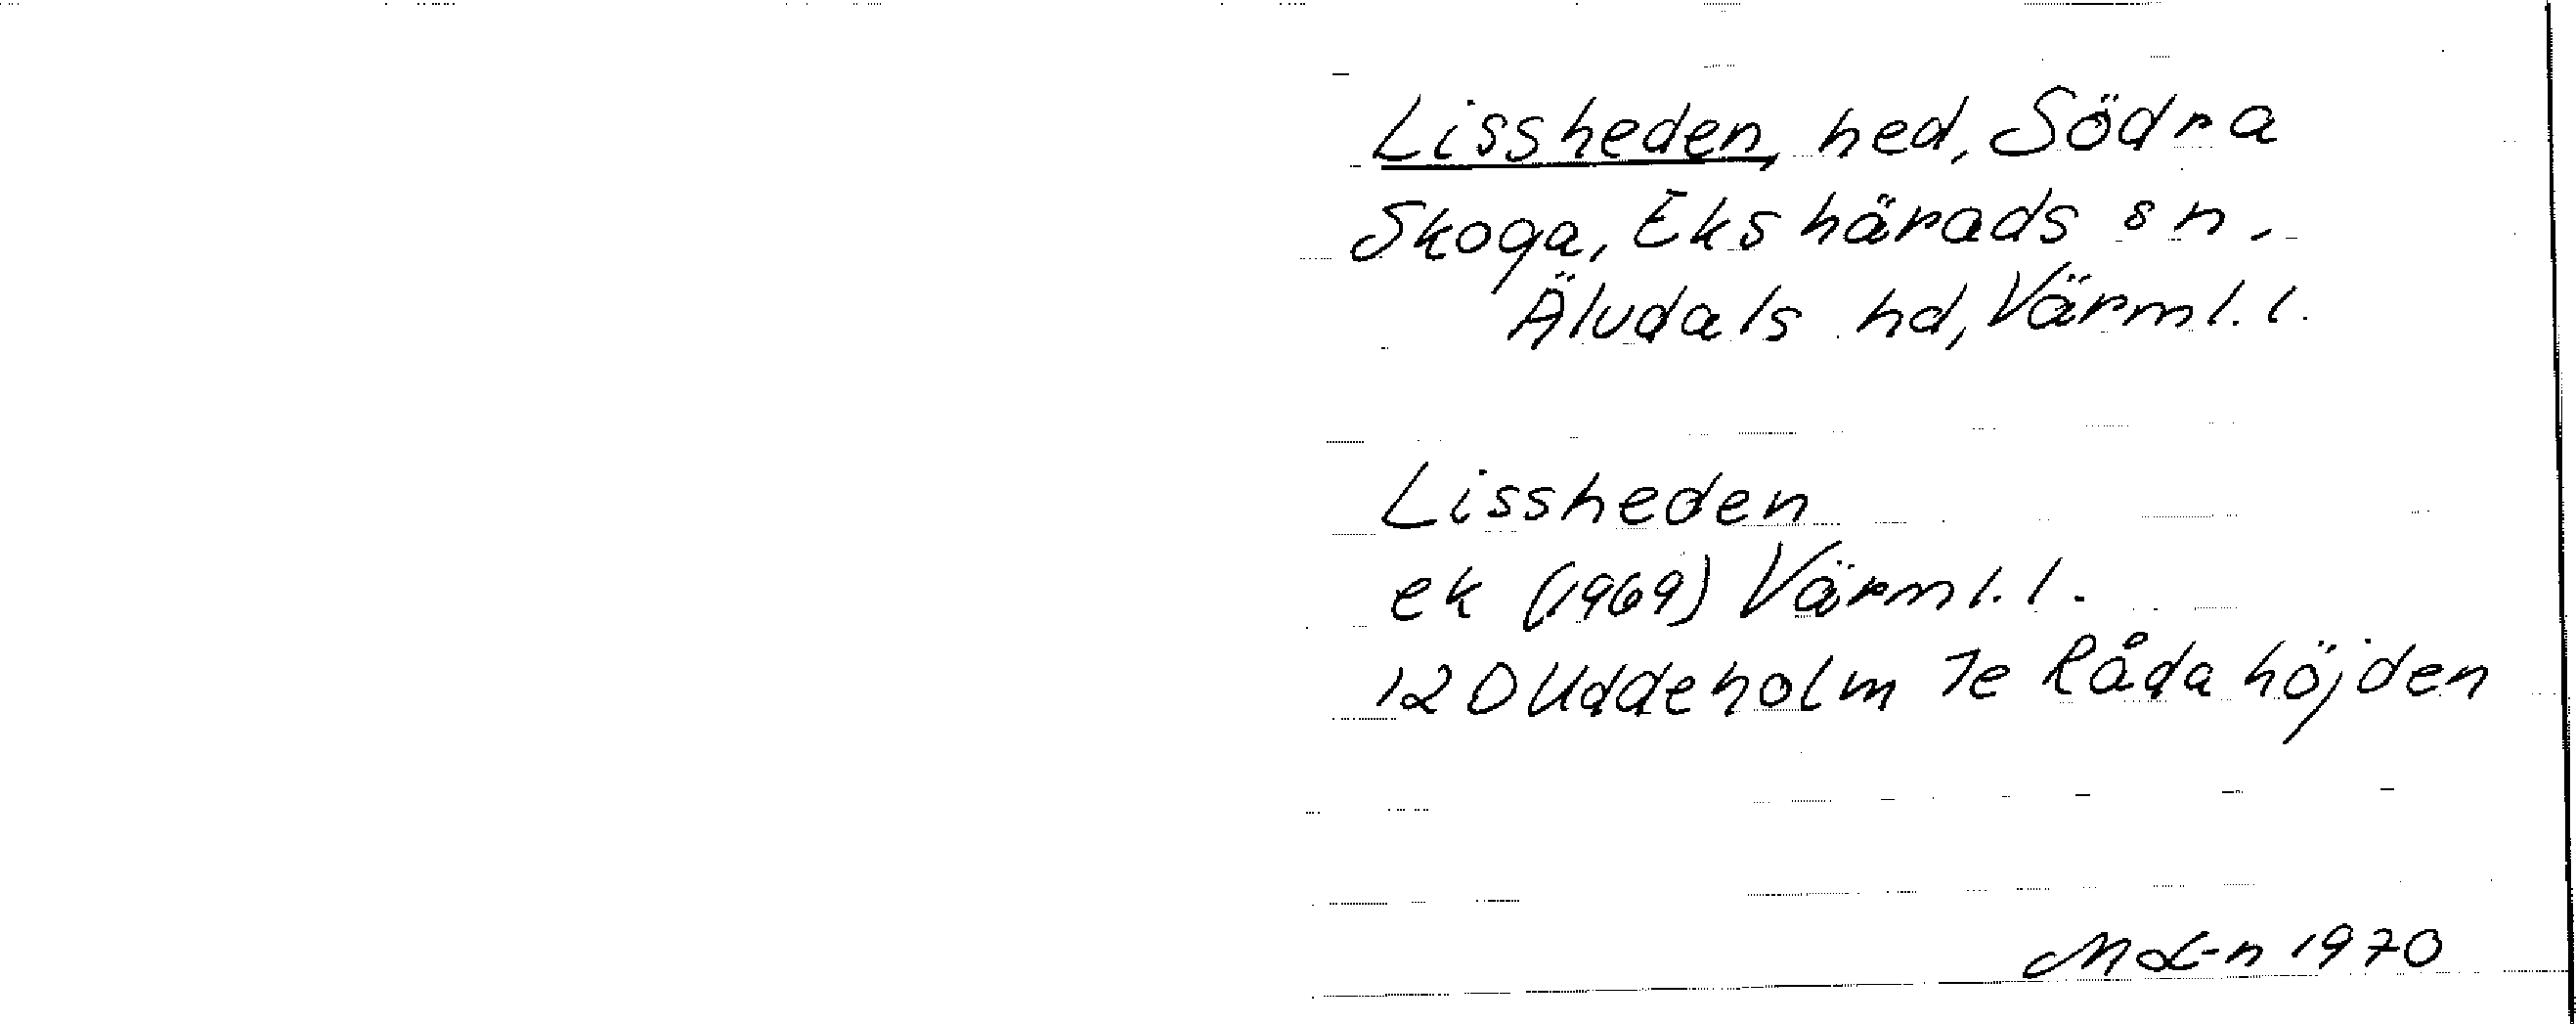 Lissheden, hed, Södra
Skoga, Ekshärads sn,
Älvdals hd, Värml. l.
Lissheden
ek (1969) Värml. l.
12D Uddeholm 7e Rådahöjden
ML-n 1970